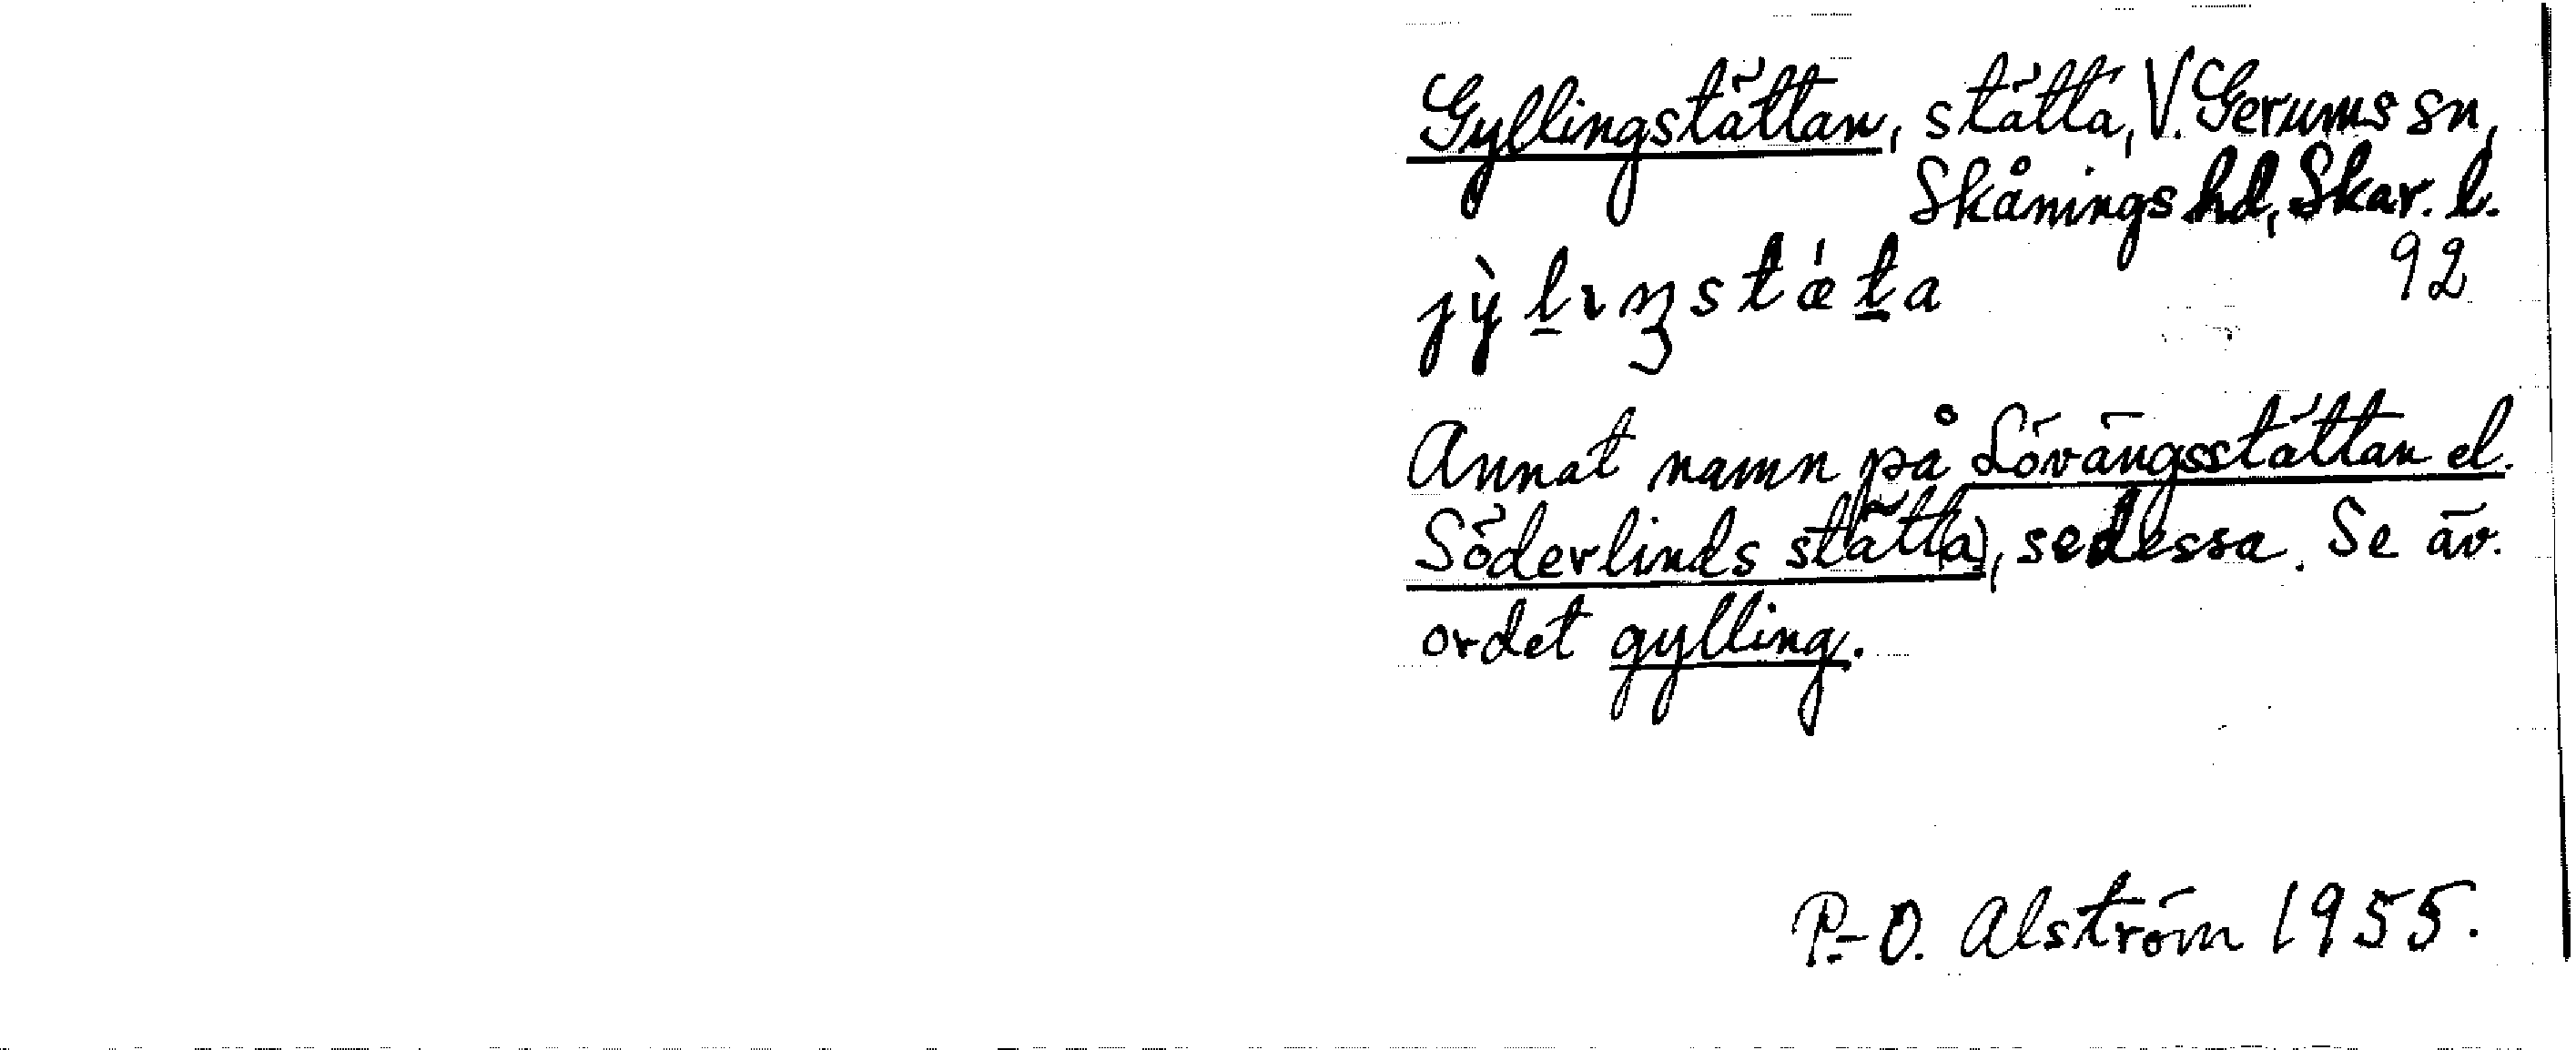 Gyllingstättan, stätta, V. Gerums sn,
Skånings hd, Skar. l.
92
jỳl̲ıŋstæ̍t̲a
Annat namn på Lövängsstättan el.
Söderlinds stätta), sedessa. Se äv.
ordet gylling.
P.-O. Alström 1955.